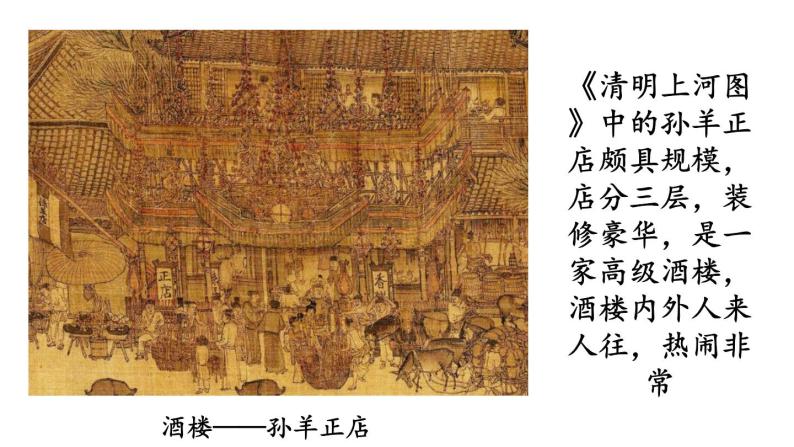 正店
香
《清明上河图
》中的孙羊正
店颇具规模，
店分三层，装
修豪华，是一
家高级酒楼，
酒楼内外人来
人往，热闹非
常
酒楼——孙羊正店